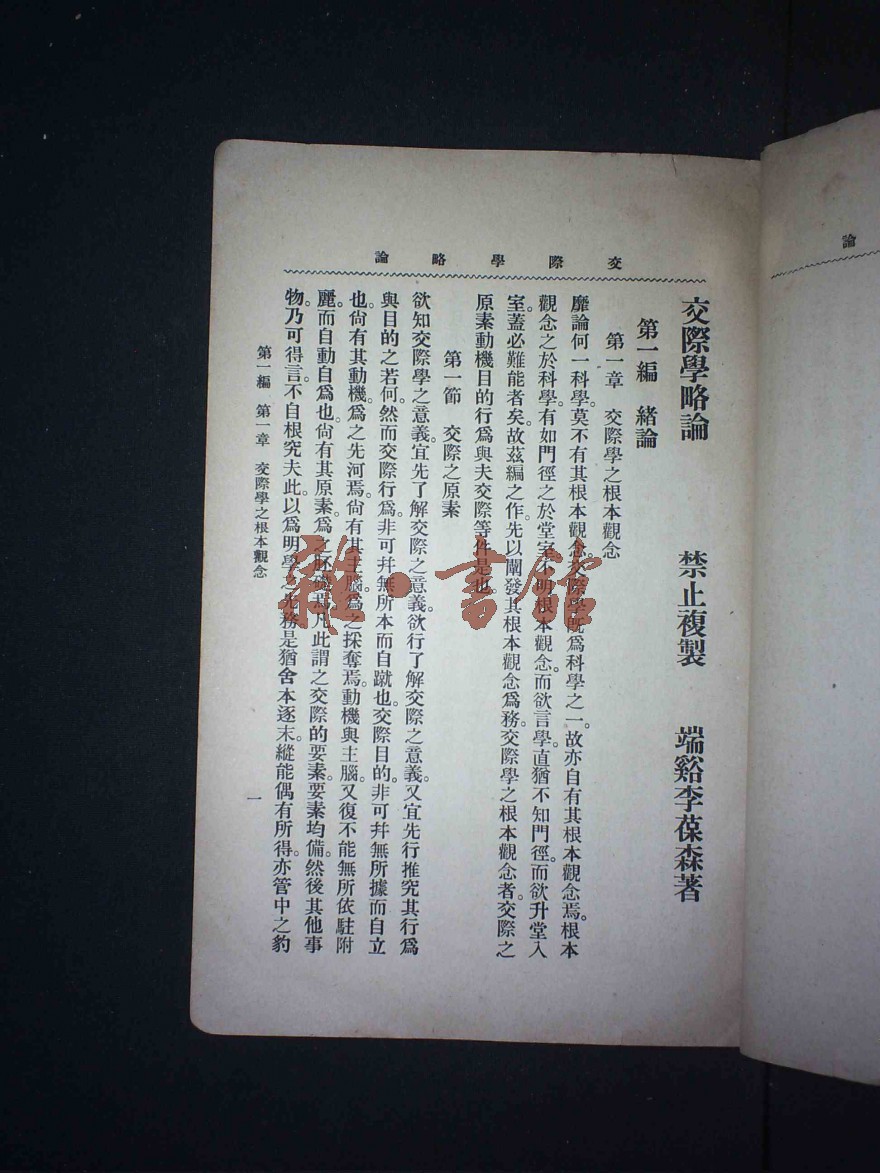 交際學略論
交際學略論　禁止複製　端谿李葆森著
第一編　緒論
第一章　交際學之根本觀念
靡論何一科學。莫不有其根本觀念。交際學既爲科學之一。故亦自有其根本觀念焉。根本
觀念之於科學。有如門徑之於堂室。不明根本觀念。而欲言學。直猶不知門徑。而欲升堂入
室。蓋必難能者矣。故茲編之作。先以闡發其根本觀念爲務。交際學之根本觀念者。交際之
原素動機目的行爲與夫交際等件是也。
第一節　交際之原素
欲知交際學之意義。宜先了解交際之意義。欲行了解交際之意義。又宜先行推究其行爲
與目的之若何。然而交際行爲。非可幷無所本而自蹴也。交際目的。非可幷無所據而自立
也。尙有其動機。爲之先河焉。尙有其主腦。爲之採奪焉。動機與主腦。又復不能無所依駐附
麗。而自動自爲也。尙有其原素。爲之胚礎焉。凡此謂之交際的要素。要素均備。然後其他事
物。乃可得言。不自根究夫此。以爲明學之先務。是猶舍本逐末。縱能偶有所得。亦管中之豹
第一編　第一章　交際學之根本觀念
一
論
雜·書館